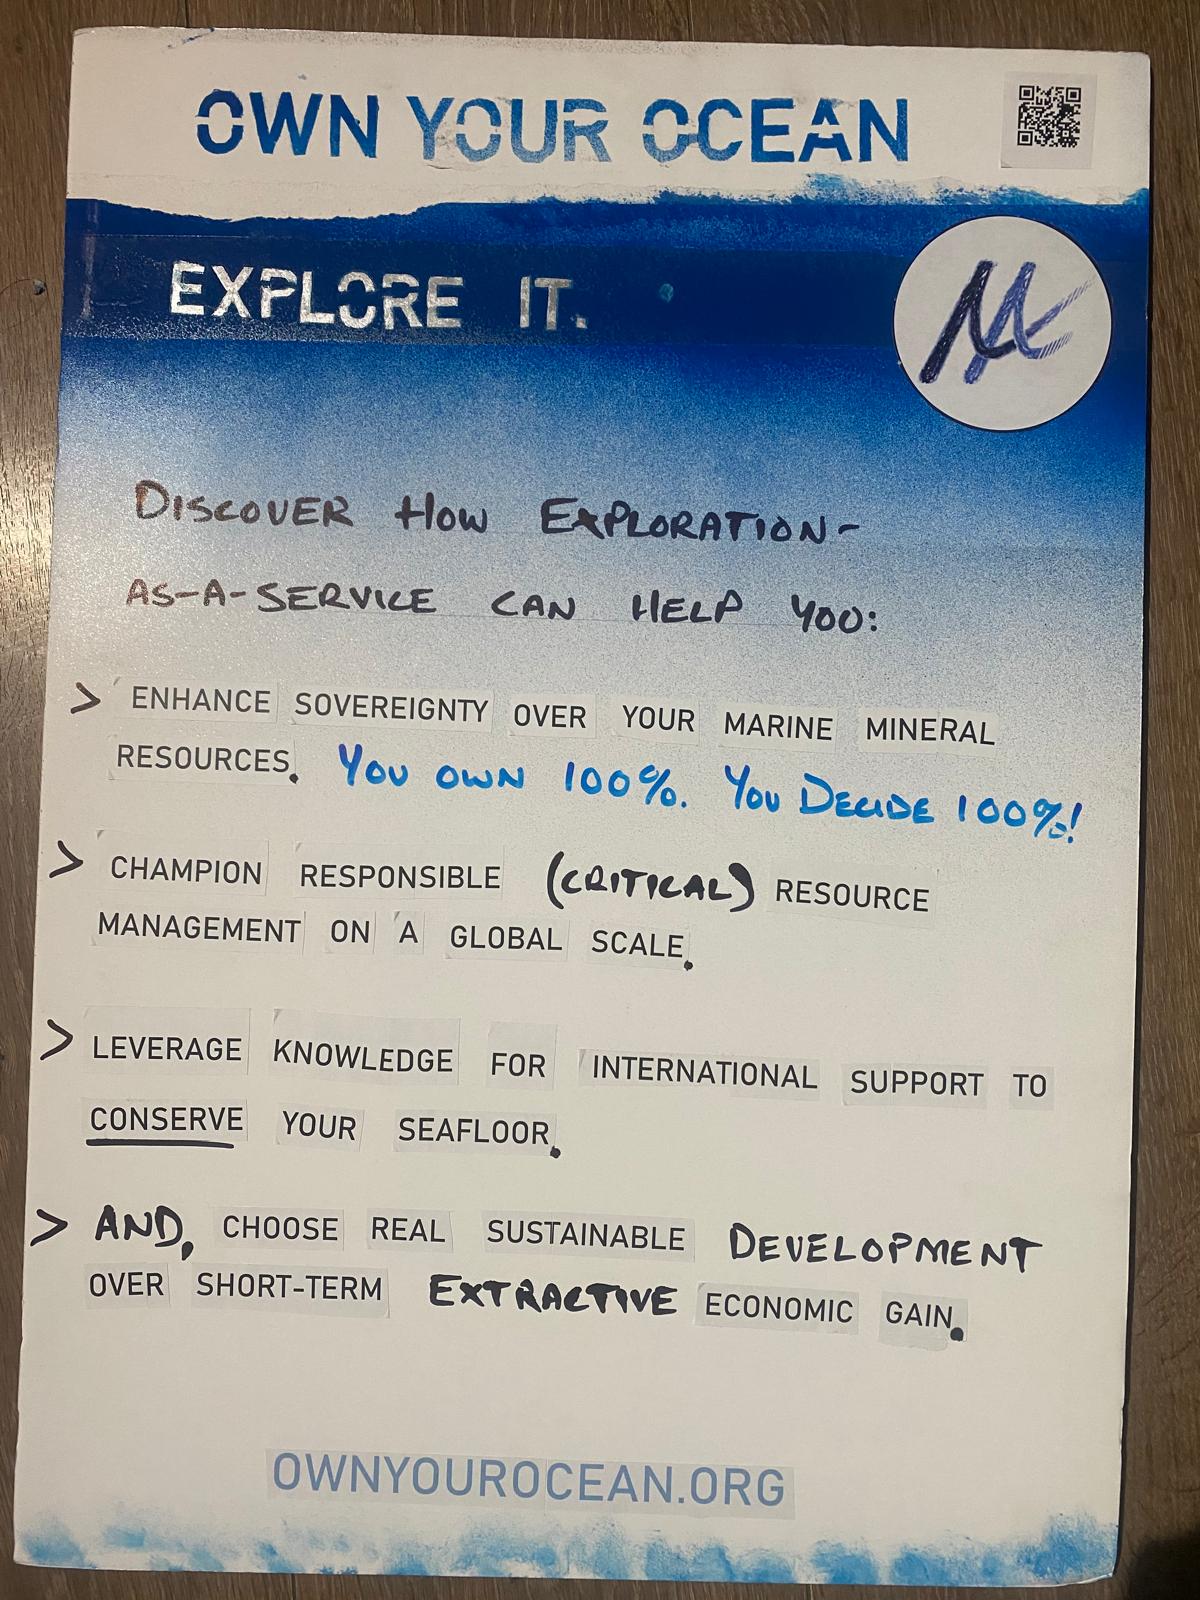 OWN YOUR OCEAN
EXPLORE IT.
DISCOVER HOW EXPLORATION-
AS-A-SERVICE CAN HELP YOU:
> ENHANCE SOVEREIGNTY OVER YOUR MARINE MINERAL
RESOURCES. YOU OWN 100%. YOU DECIDE 100%!
> CHAMPION RESPONSIBLE (CRITICAL) RESOURCE
MANAGEMENT ON A GLOBAL SCALE.
> LEVERAGE KNOWLEDGE FOR INTERNATIONAL SUPPORT TO
CONSERVE YOUR SEAFLOOR.
> AND, CHOOSE REAL SUSTAINABLE DEVELOPMENT
OVER SHORT-TERM EXTRACTIVE ECONOMIC GAIN.
OWNYOUROCEAN.ORG